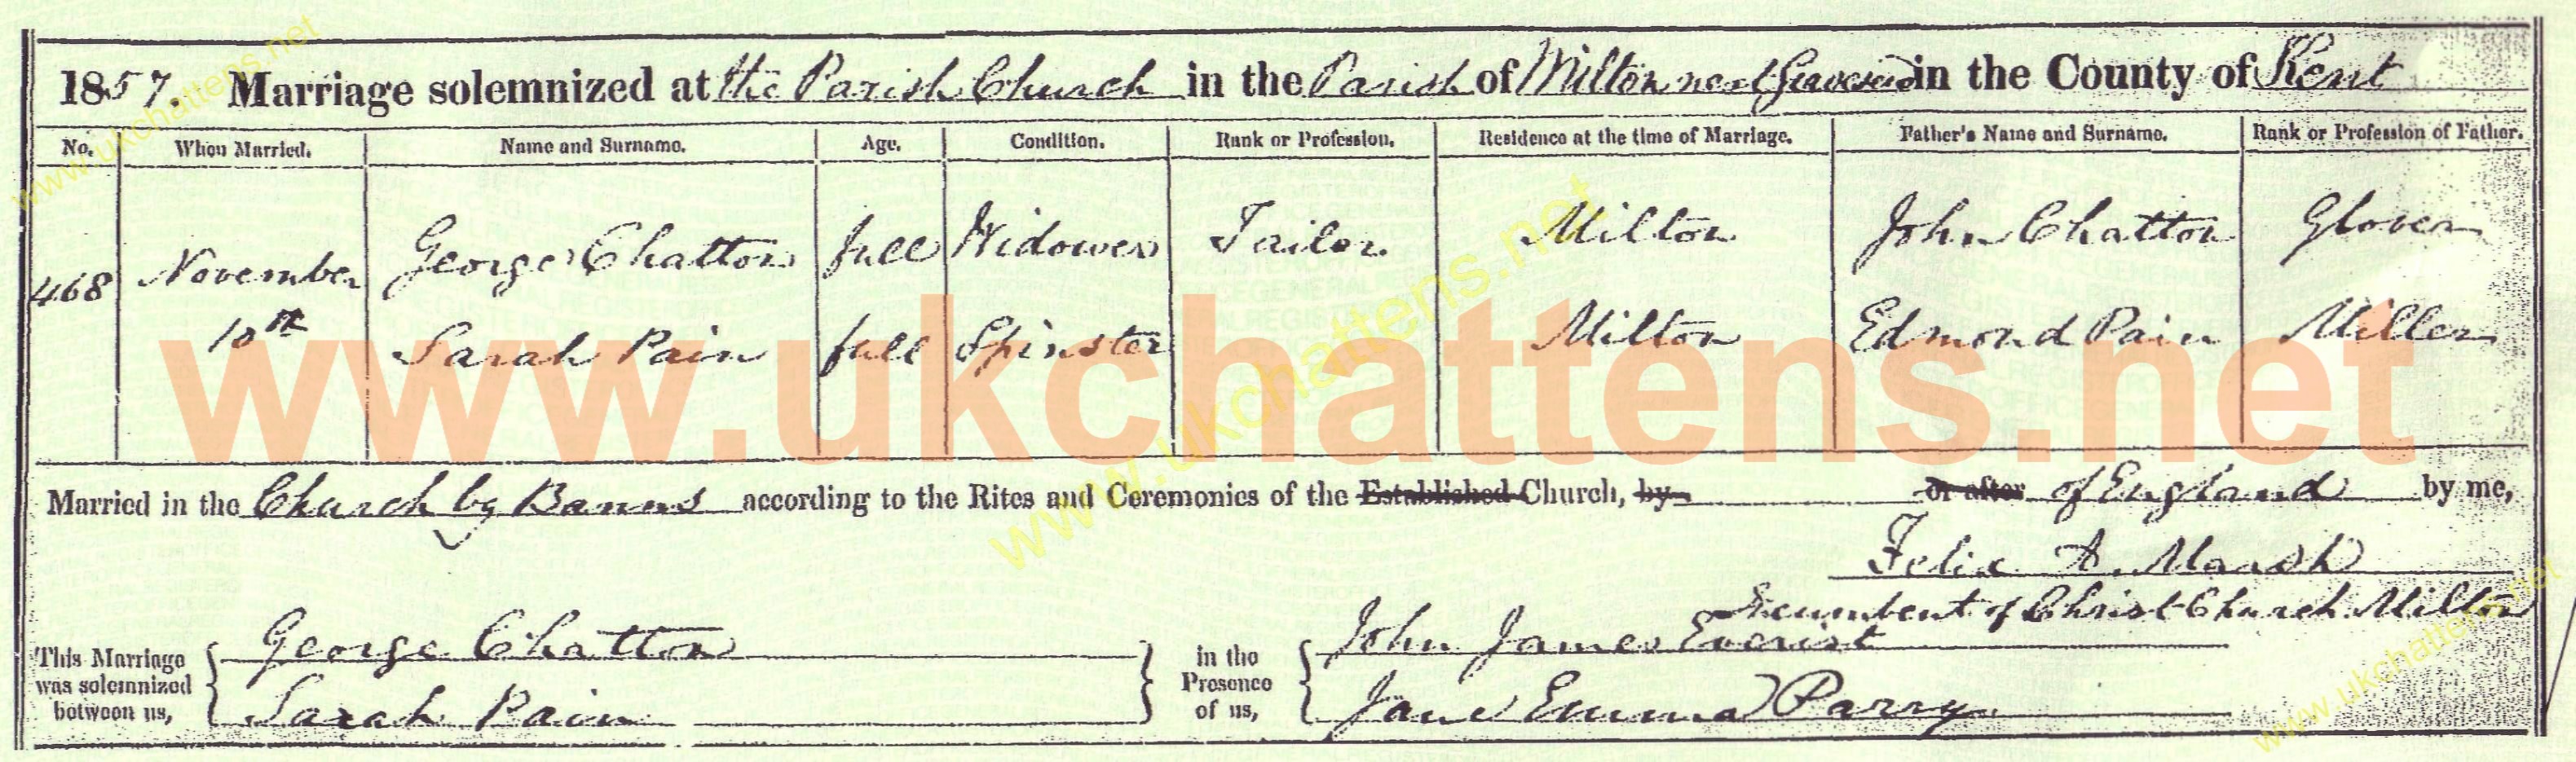 1857. Marriage solemnized at the Parish Church in the Parish of Milton next Gravesend in the County of Kent
No. When Married. Name and Surname. Age. Condition. Rank or Profession. Residence at the time of Marriage. Father's Name and Surname. Rank or Profession of Father.
468 November 10th George Chatton full Widower Tailor Milton John Chatton Glover
Sarah Pain full Spinster Milton Edmond Pain Miller
www.ukchattens.net
Married in the Church by Banns according to the Rites and Ceremonies of the Established Church, by or after of England by me,
Felix A. Marsh
Incumbent of Christ Church Milton
This Marriage was solemnized between us, George Chatton
Sarah Pain
in the Presence of us, John James Everist
Jane Emma Parry
www.ukchattens.net
www.ukchattens.net
www.ukchattens.net